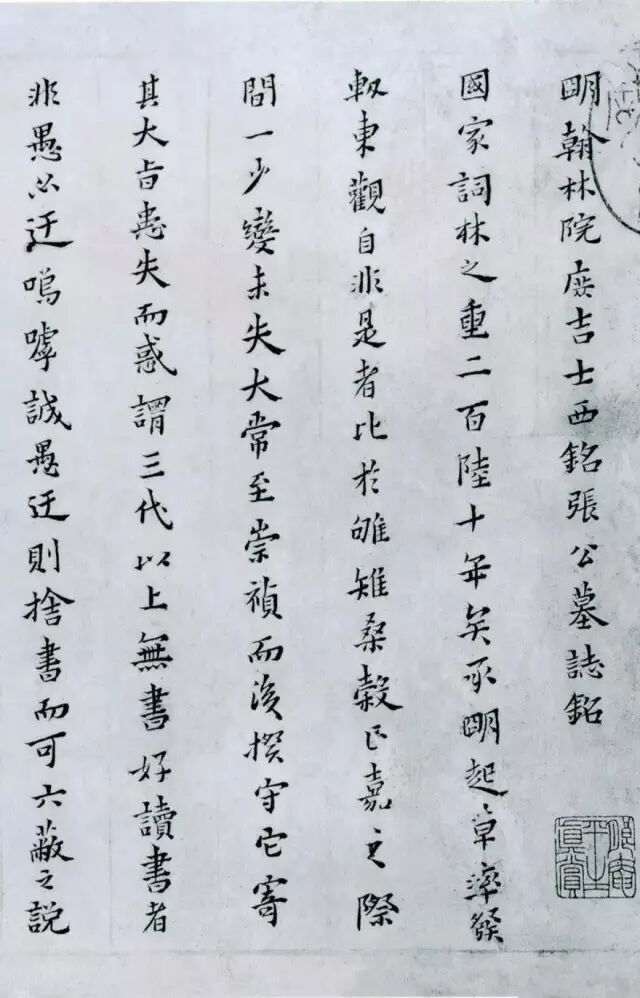 明翰林院庶吉士西銘張公墓誌銘
國家詞林之重二百陸十年矣承明起草率發
軔東觀自非是者比於雊雉桑穀正嘉之際
間一少變未失大常至崇禎而後揆守它寄
其大旨恚失而惑謂三代以上無書好讀書者
非愚必迂嗚嘑誠愚迂則捨書而可六蔽之説